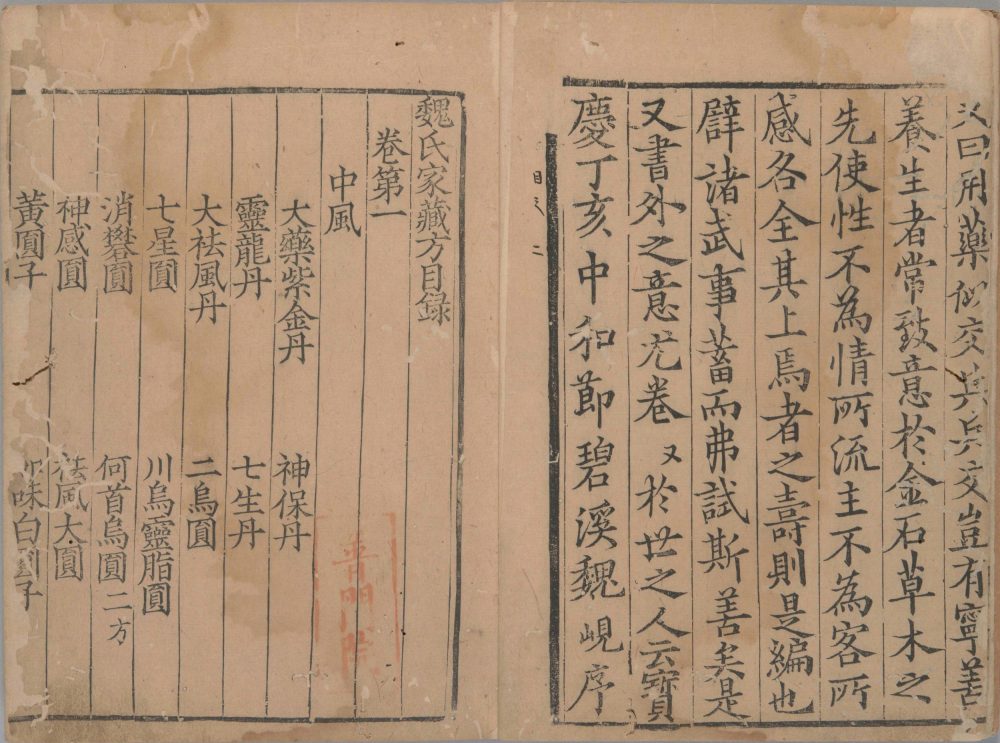 又曰用藥如交兵兵交豈有寧善
養生者常致意於金石草木之
先使性不為情所流主不為客所
感各全其上焉者之壽則是編也
辟諸武事蓄而弗試斯善矣是
又書外之意尤卷又於世之人云寶
慶丁亥中和節碧溪魏峴序
目 二
魏氏家藏方目録
卷第一
中風
大藥紫金丹 神保丹
靈龍丹 七生丹
大祛風丹 二烏圓
七星圓 川烏靈脂圓
消礬圓 何首烏圓二方
神感圓 祛風大圓
黃圓子 味白圓子
普門院